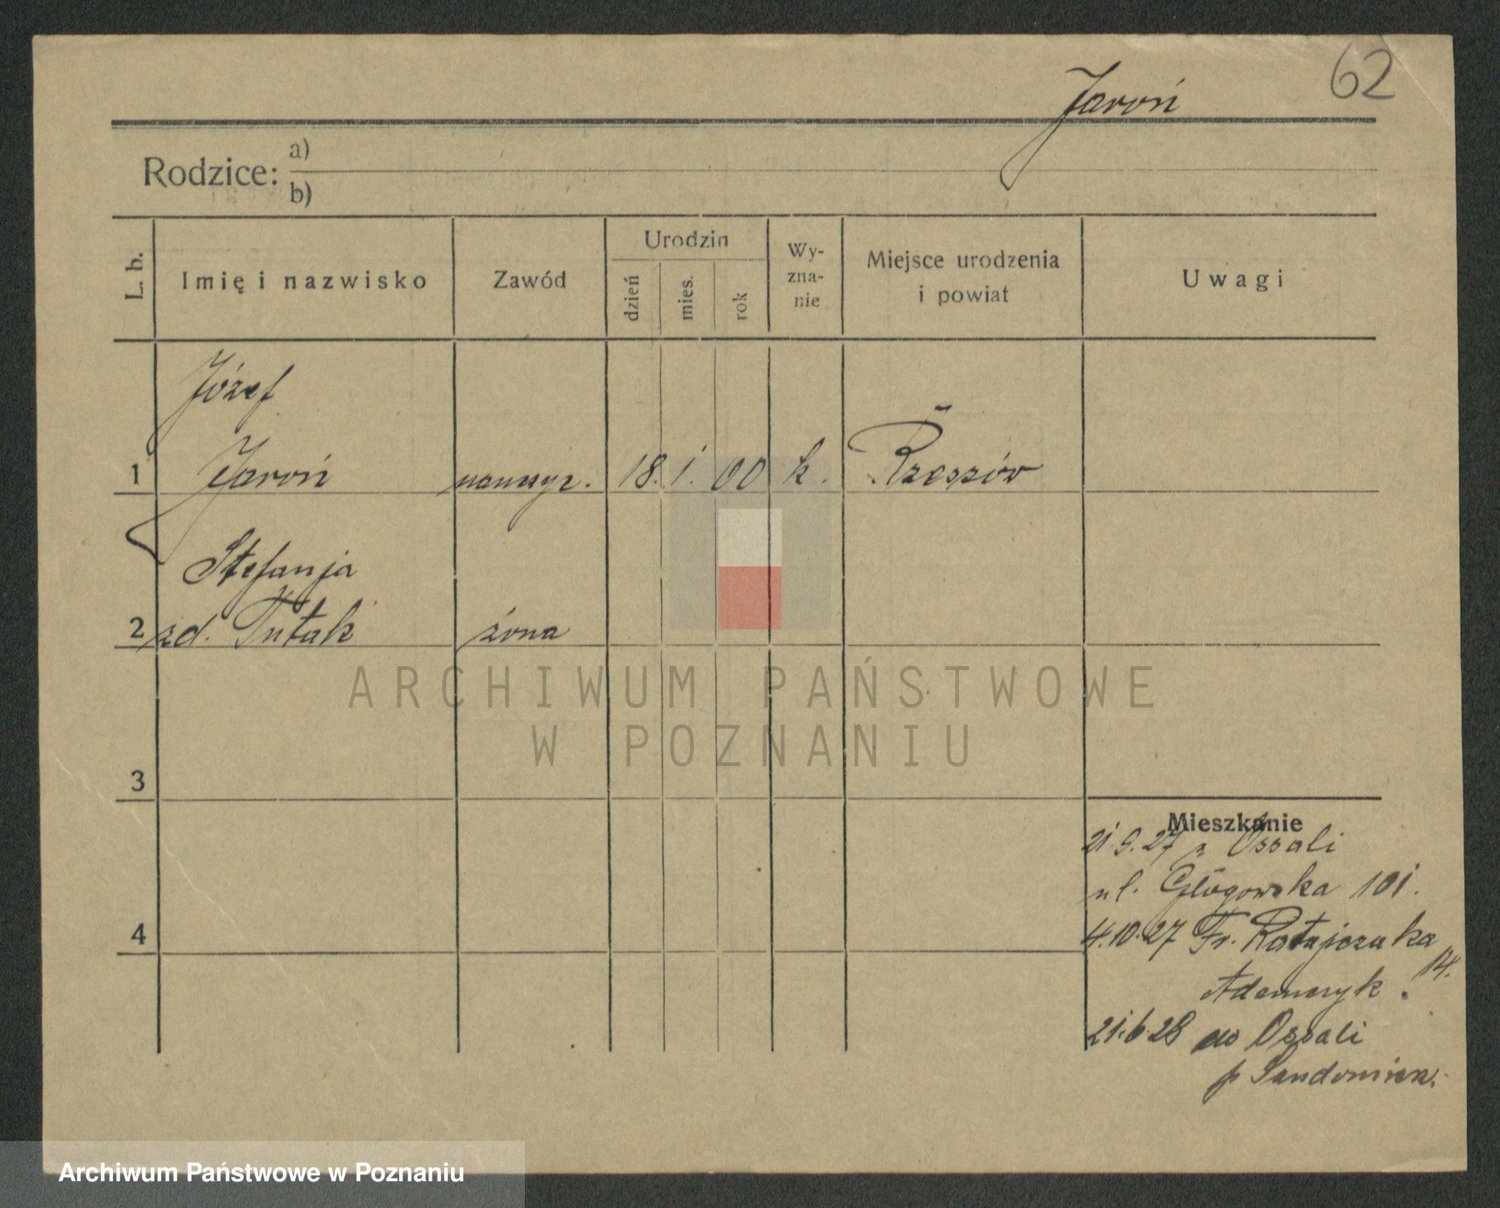 62
Jaroń
Rodzice: a)
b)
L. b.
Imię i nazwisko
Zawód
Urodzin
dzień
mies.
rok
Wy-
zna-
nie
Miejsce urodzenia
i powiat
Uwagi
Józef
1 Jaroń nauczyc. 18. 1. 00 k. Rzeszów
Stefanja
2 zd. Tutak żona
ARCHIWUM PAŃSTWOWE
W POZNANIU
3
Mieszkanie
21.9.27 z Ossali
ul. Głogowska 101.
4
4.10.27 Fr. Ratajczaka
14.
Adamczyk.
21.6.28 do Ossali
p Sandomierz.
Archiwum Państwowe w Poznaniu